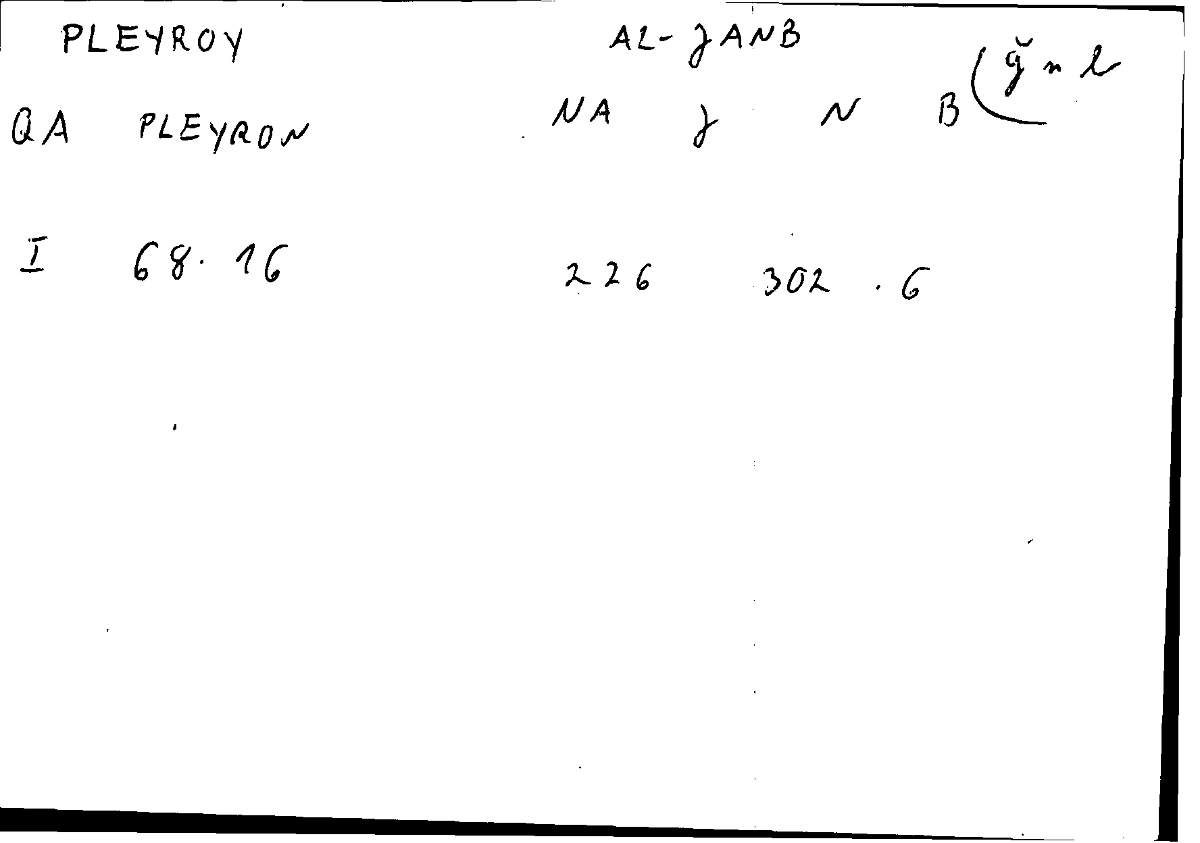 PLEYROY AL-JANB
QA PLEYRON NA J N B (ǧnb
I 68.16 226 302.6